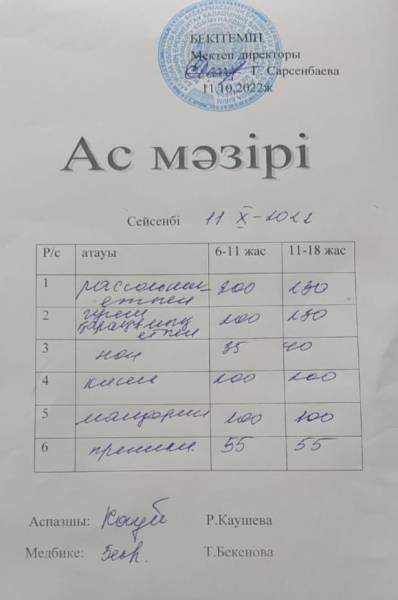 БЕКІТЕМІН
Мектеп директоры
Г. Сарсенбаева
11.10.2022ж
Ас мәзірі
Сейсенбі 11 X-2022
Р/с атауы 6-11 жас 11-18 жас
1 рассольник етпен 200 250
2 күріш қарақұмық етпен 200 230
3 нан 35 40
4 кисель 200 200
5 мандарин 100 100
6 пряник 55 55
Аспазшы: Кауш Р.Каушева
Медбике: Т.Бекенова